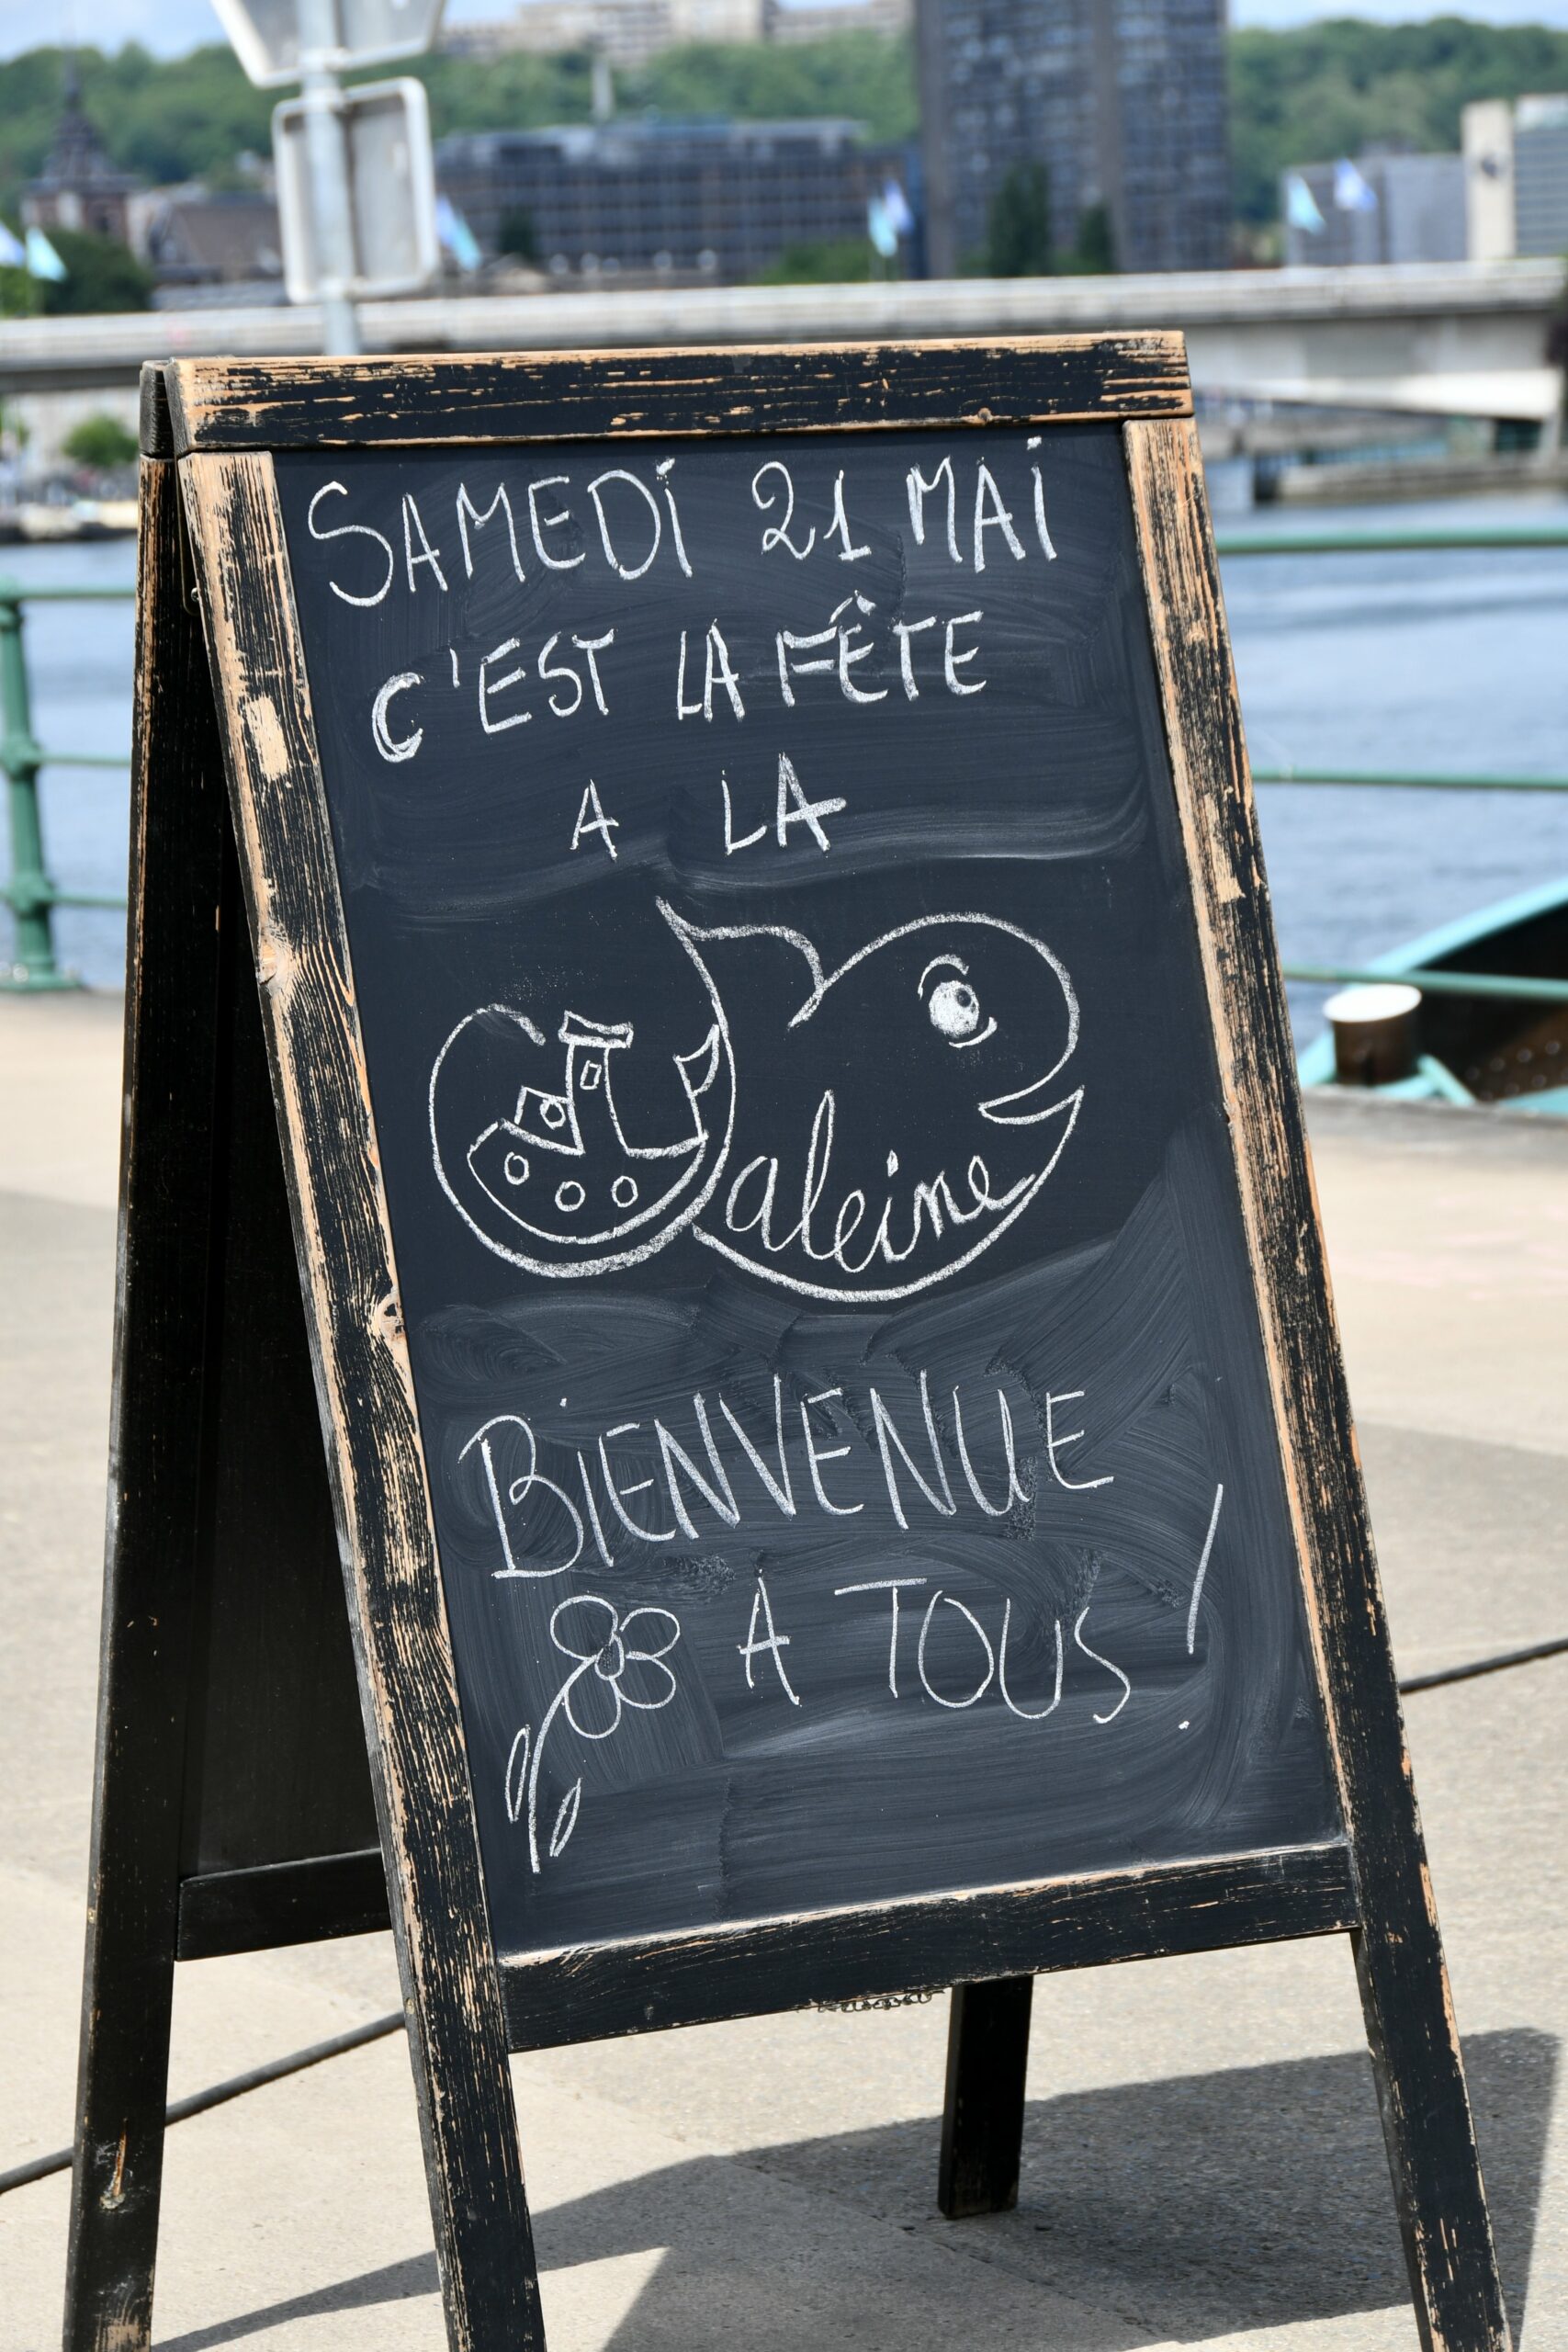 SAMEDI 21 MAI
C'EST LA FÊTE
A LA
aleine
BIENVENUE
À TOUS !